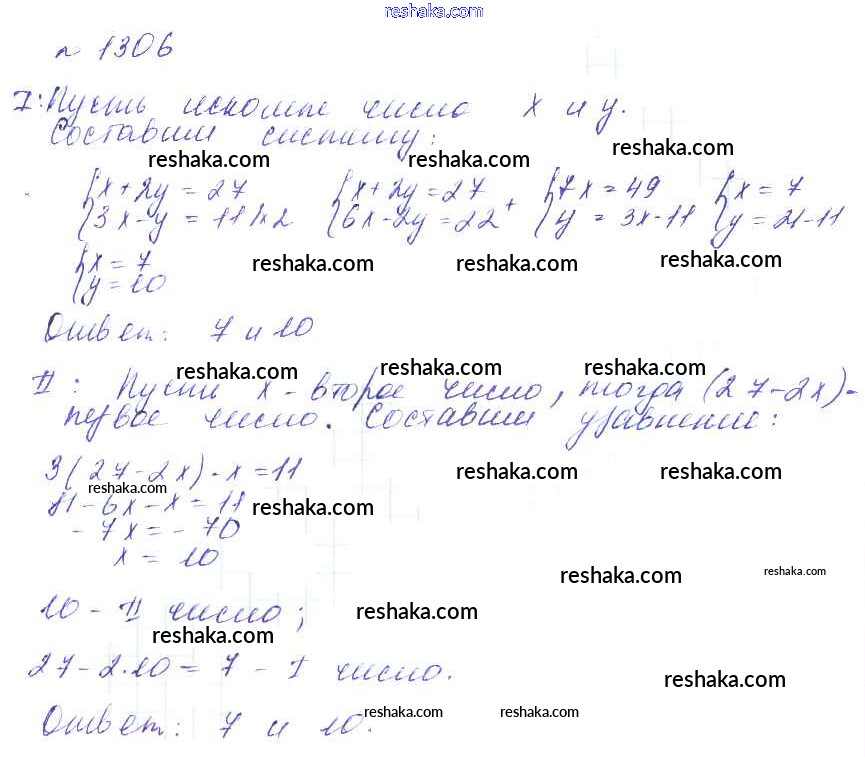 reshaka.com
№ 1306
I: Пусть искомые числа x и y.
Составим систему:
reshaka.com reshaka.com
{x + 2y = 27 {x + 2y = 27 {7x = 49 {x = 7
{3x - y = 11 |x2 {6x - 2y = 22 + {y = 3x - 11 {y = 21 - 11
{x = 7
{y = 10
reshaka.com reshaka.com reshaka.com
Ответ: 7 и 10
reshaka.com reshaka.com reshaka.com
II: Пусть x - второе число, тогда (27 - 2x) -
первое число. Составим уравнение:
3(27 - 2x) - x = 11
reshaka.com reshaka.com reshaka.com
81 - 6x - x = 11
reshaka.com
- 7x = - 70
x = 10
reshaka.com reshaka.com
10 - II число;
reshaka.com
reshaka.com
27 - 2·10 = 7 - I число.
reshaka.com
Ответ: 7 и 10.
reshaka.com reshaka.com